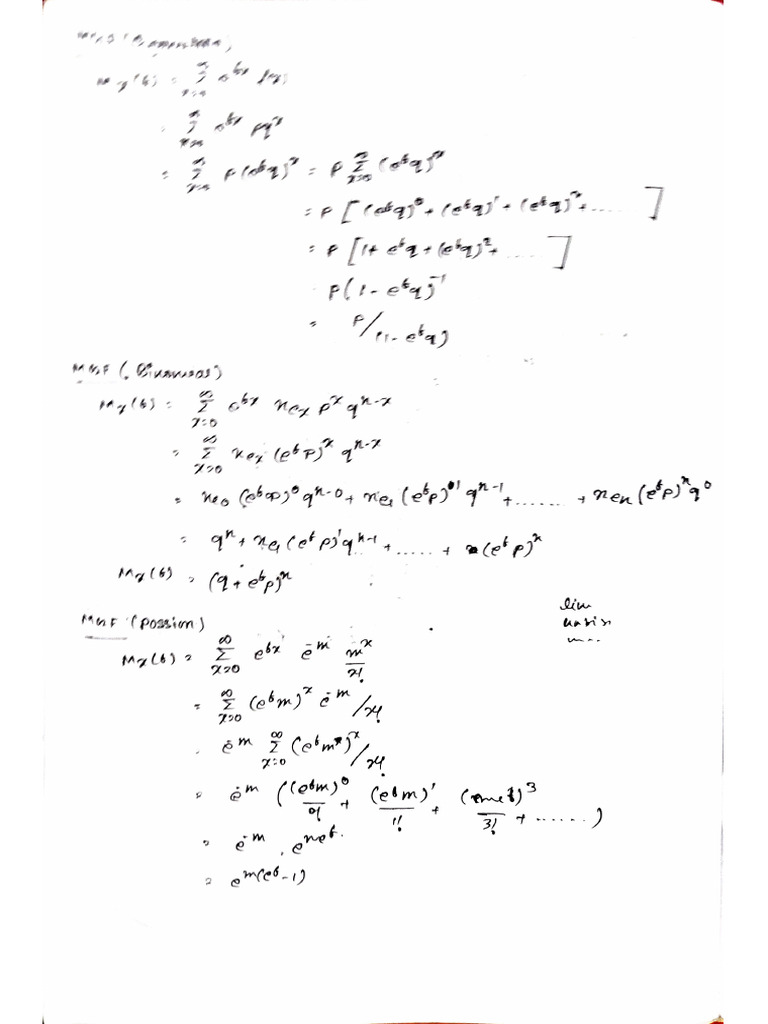 M_x(t) = Σ_{x=0}^{∞} e^{tx} f(x)
= Σ_{x=0}^{∞} e^{tx} pq^x
= Σ_{x=0}^{∞} p(e^t q)^x = p Σ_{x=0}^{∞} (e^t q)^x
= p [(e^t q)^0 + (e^t q)^1 + (e^t q)^2 + ....]
= p [1 + e^t q + (e^t q)^2 + ....]
p(1 - e^t q)^{-1}
= p/(1 - e^t q)
MGF (Binomial)
M_x(t) = Σ_{x=0}^{∞} e^{tx} n_{c_x} p^x q^{n-x}
= Σ_{x=0}^{∞} n_{c_x} (e^t p)^x q^{n-x}
= n_{c_0} (e^t p)^0 q^{n-0} + n_{c_1} (e^t p)^1 q^{n-1} + ....... + n_{c_n} (e^t p)^n q^0
= q^n + n_{c_1} (e^t p)^1 q^{n-1} + ..... + (e^t p)^n
M_x(t) = (q + e^t p)^n
MGF (Possion)
lim
M_x(t) = Σ_{x=0}^{∞} e^{tx} e^{-m} m^x/x!
= Σ_{x=0}^{∞} (e^t m)^x e^{-m}/x!
e^{-m} Σ_{x=0}^{∞} (e^t m)^x/x!
= e^{-m} ((e^t m)^0/0! + (e^t m)^1/1! + (me^t)^3/3! + ......)
= e^{-m} . e^{me^t}.
= e^{m(e^t-1)}